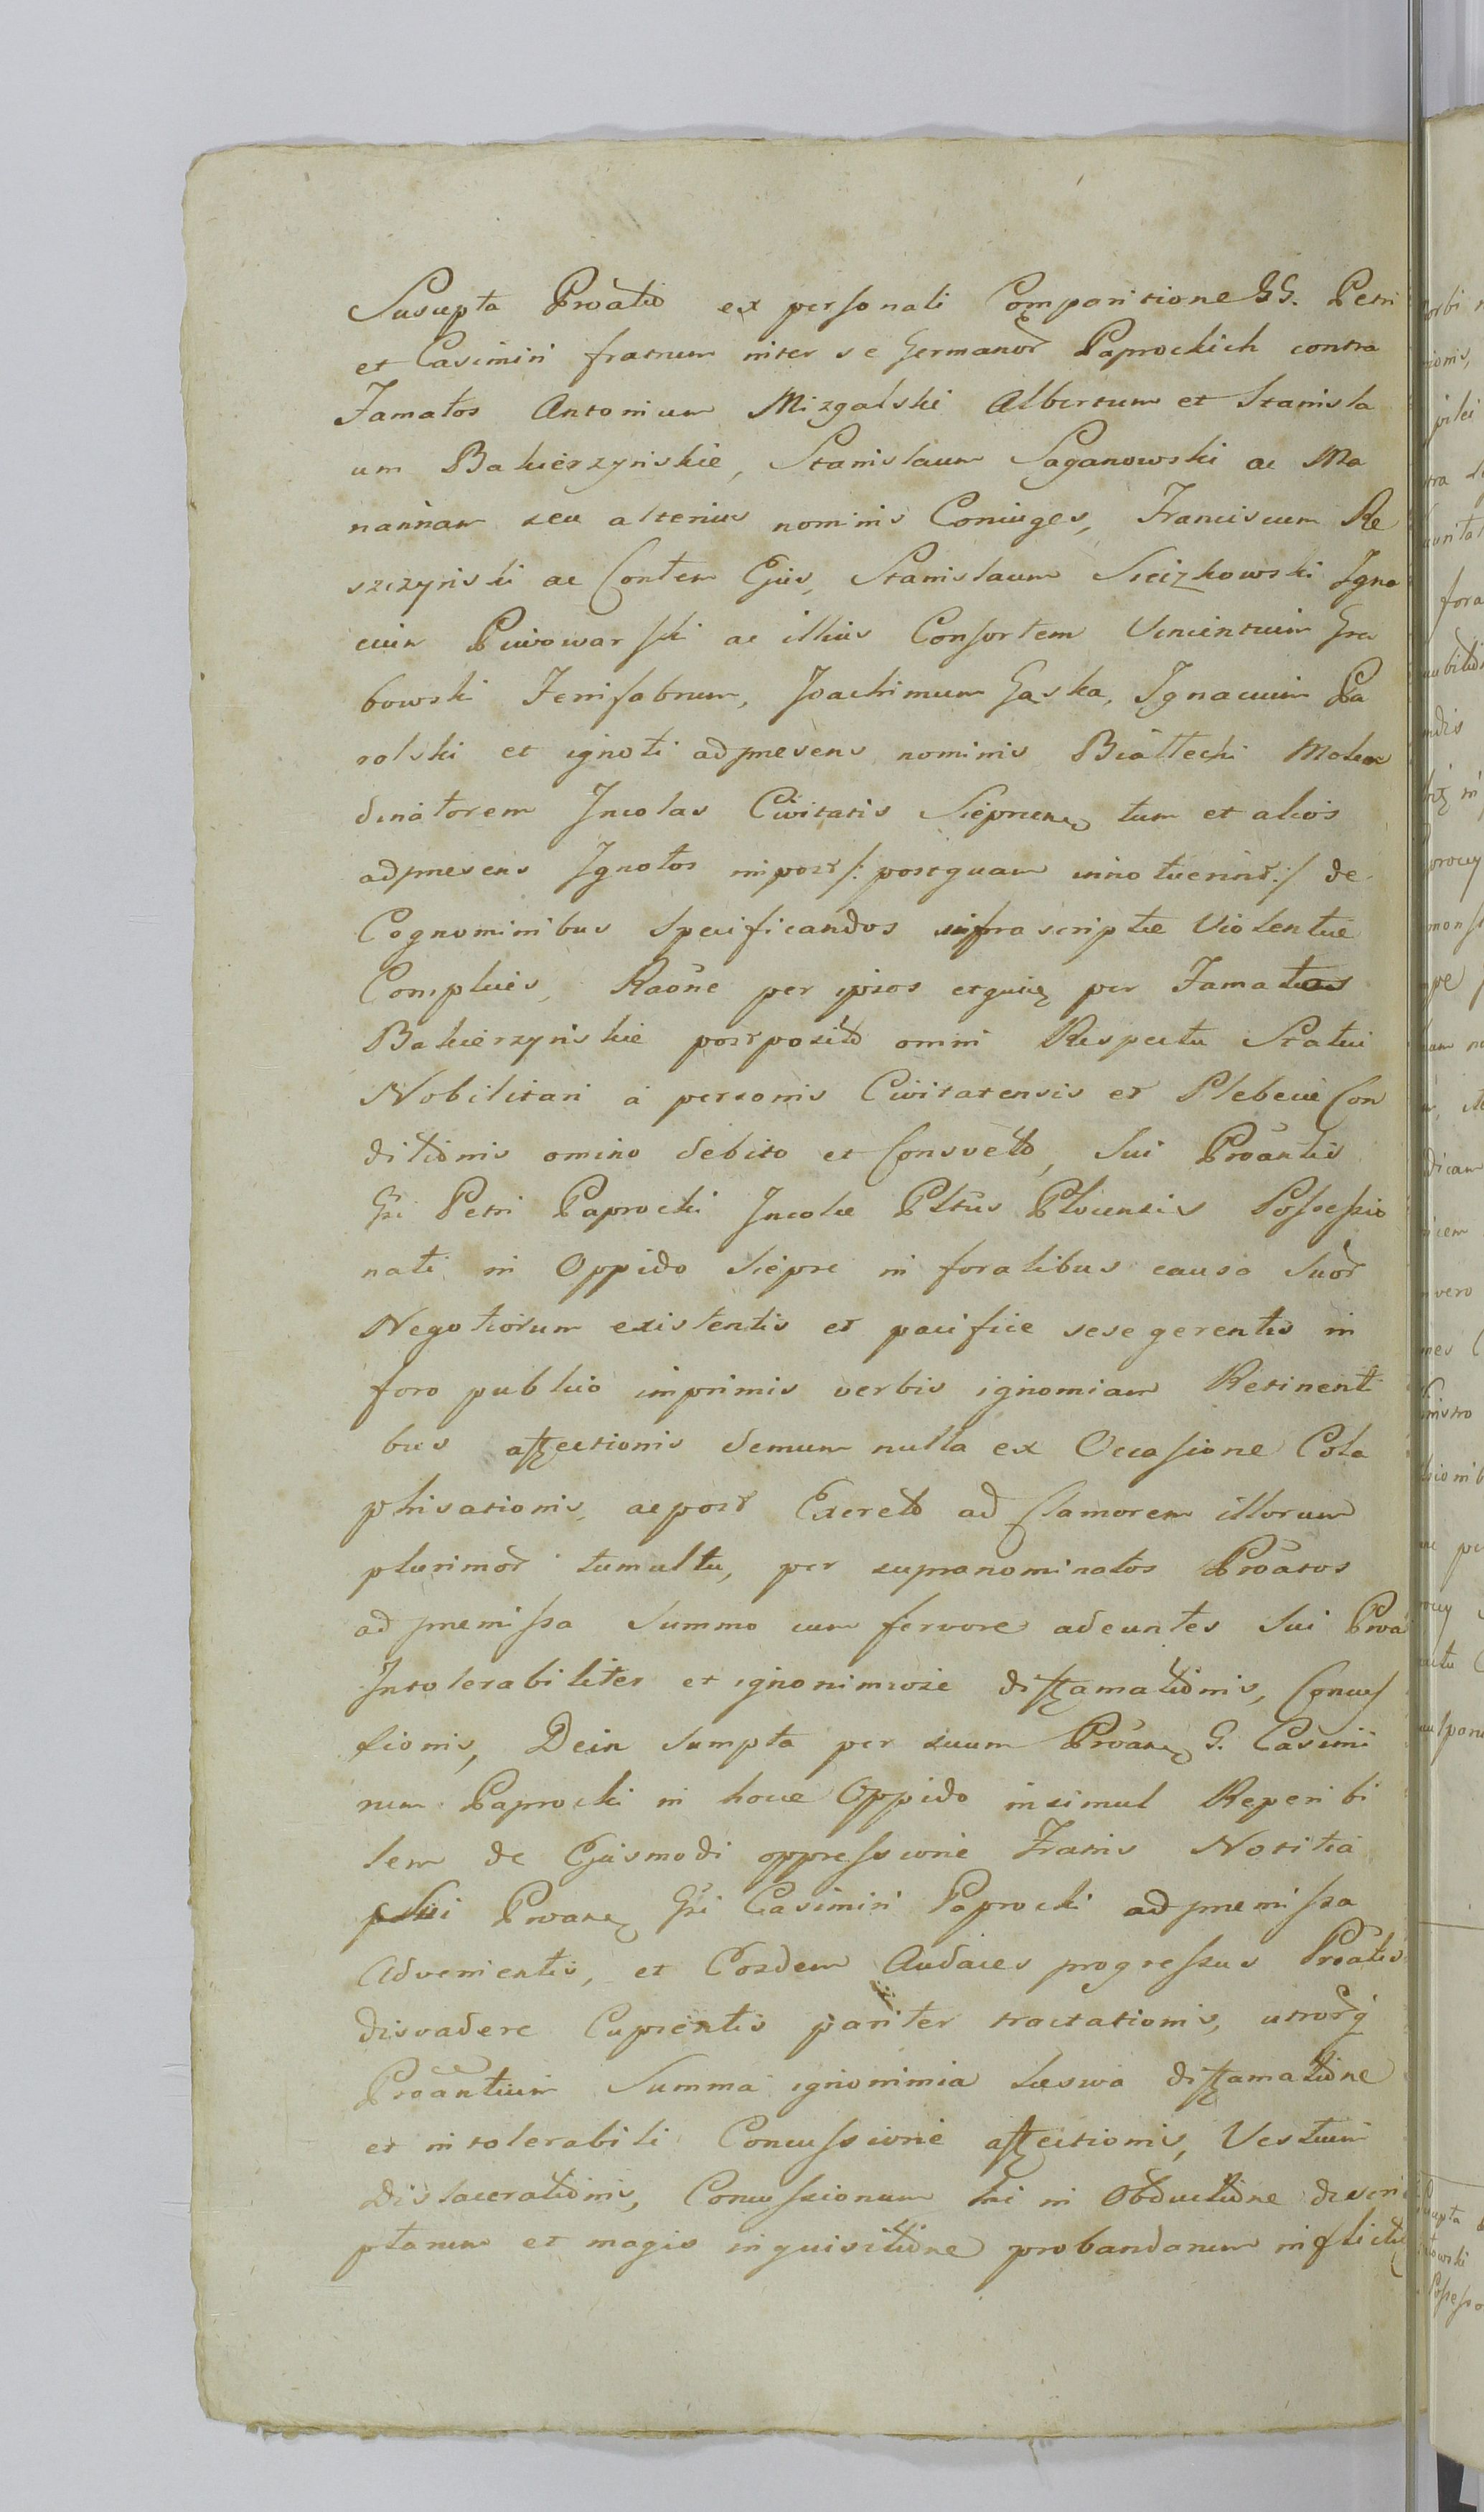 Suscepta Proātio ex personali Comparitione GG. Petri
et Casimiri fratrum inter se Germanor Paprockich contra
Famatos Antonium Mizgalski Albertum et Stanisla
um Bakierzynskie, Stanislaum Saganowski ac Ma
riannam seu alterius nominis Coniuges, Franciscum Re
szczynski ac Contem Ejus, Stanislaum Sieizkowski Igna
cium Piwowarski ac illius Consortem Vincentium Gra
bowski Ferrifabrum, Joachimum Gąska, Ignacium Pa
rolski et ignoti adpresens nominis Białlecki Molen
dinatorem Incolas Civitatis Sieprcen tum et alios
adpresens Ignotos inpost /: postquam innotuerint :/ de
Cognominibus specificandos infrascriptæ Violentiæ
Complices, Raōne per ipsos etquiq per Famatos
Bakierzynskie postposito omni Respectu Statui
Nobilitari á personis Civitatensis et Plebeiæ Con
ditionis omino debito et Consveto, sui Proāntis
Gsi Petri Paprocki Incolæ Pltūs Plocensis Possessio
nati in Oppido Sieprc in foralibus causa Suor
Negotiorum existentis et pacifice sese gerentis in
foro publico imprimis verbis ignomiam Retinenti
bus affectionis demum nulla ex Occasione Cola
phisationis, acpost Excreto ad Clamorem illorum
plurimor tumultu, per supranominatos Proātos
ad premissa Summo cum fervore adeuntes sui Proā
Intolerabiliter et ignonimiose diffamationis, Concus
sionis, Dein Sumpta per suum Proān G. Casimi
rum Paprocki in hocce Oppido insimul Reperibi
lem de Ejusmodi oppressione Fratris Notitia
sui Proan Gsi Casimiri Paprocki ad premissa
Advenientis, et Eosdem Audaces progressus Proātis
disvadere Cupientis pariter tractationis, utrorq
Proāntium Summa ignonimia Læsiva diffamatione
et intolerabili Concussione affectionis, Vestium
Dislacerationis, Concussionum hic in Obductione descri
ptarum et magis inquisitione probandarum inflictio